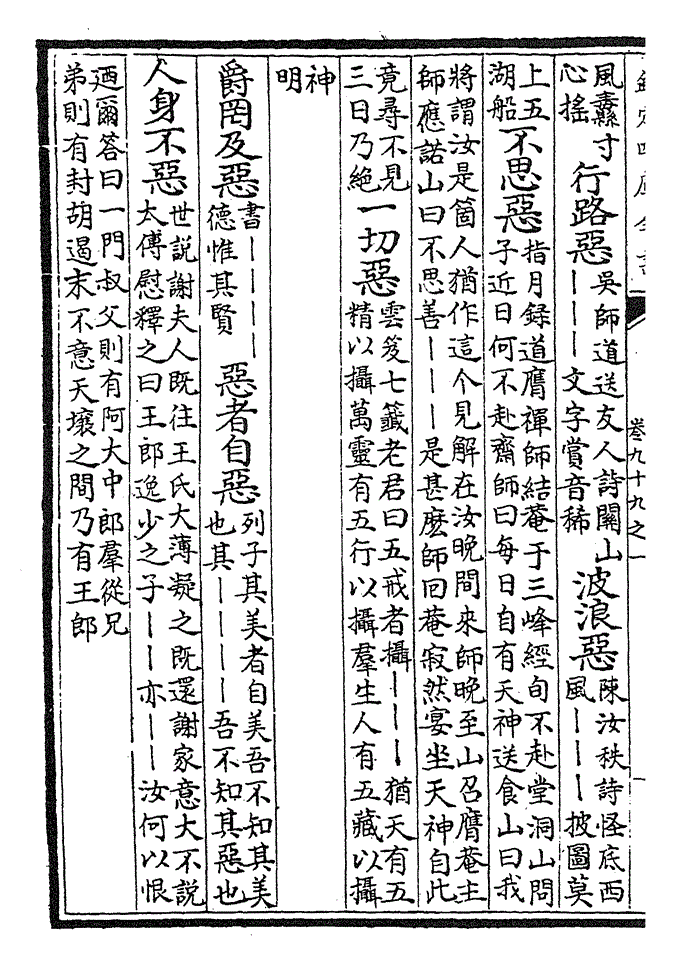 欽定四庫全書
卷九十九之一
風纛寸
心搖
行路惡
吳師道送友人詩關山
｜｜｜文字賞音稀
波浪惡
陳汝秩詩怪底西
風｜｜｜披圖莫
上五
湖船
不思惡
指月錄道膺禪師結菴于三峰經旬不赴堂洞山問
子近日何不赴齋師曰每日自有天神送食山曰我
將謂汝是箇人猶作這个見解在汝晚間來師晚至山召膺菴主
師應諾山曰不思善｜｜｜是甚麽師回菴寂然宴坐天神自此
竟尋不見
三日乃絶
一切惡
雲笈七籤老君曰五戒者攝｜｜｜猶天有五
精以攝萬靈有五行以攝羣生人有五藏以攝
神
明
爵罔及惡
書｜｜｜｜
德惟其賢
惡者自惡
列子其美者自美吾不知其美
也其｜｜｜｜吾不知其惡也
人身不惡
世說謝夫人既往王氏大薄凝之既還謝家意大不說
太傅慰釋之曰王郎逸少之子｜｜亦｜｜汝何以恨
廼爾答曰一門叔父則有阿大中郎羣從兄
弟則有封胡遏末不意天壤之間乃有王郎